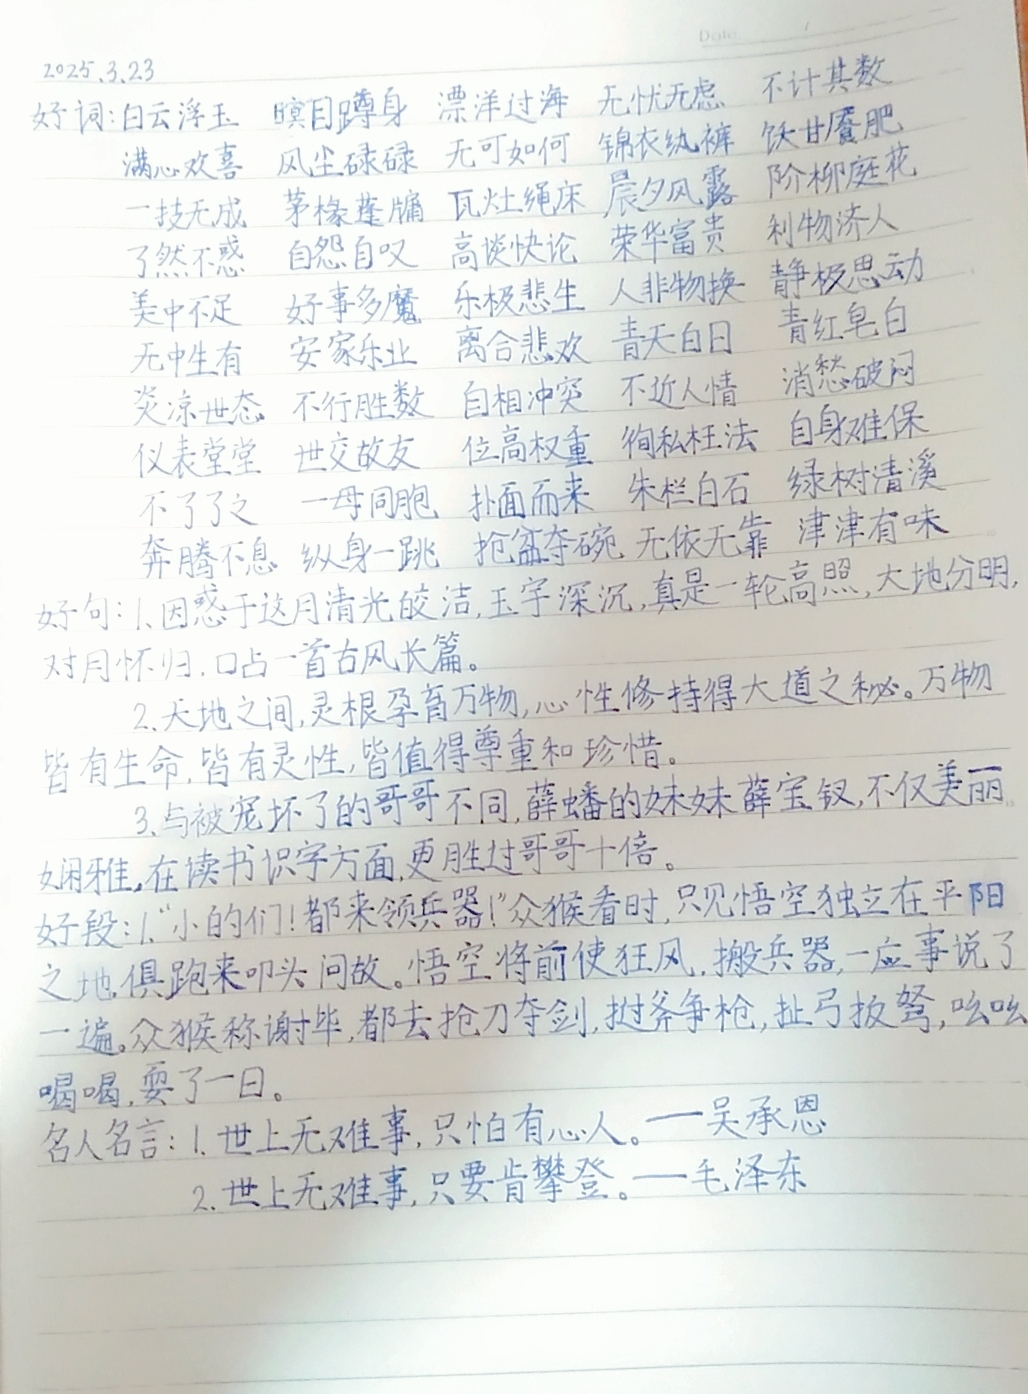 Date /
2025.3.23
好词:白云浮玉 瞑目蹲身 漂洋过海 无忧无虑 不计其数
满心欢喜 风尘碌碌 无可如何 锦衣纨裤 饫甘餍肥
一技无成 茅椽蓬牖 瓦灶绳床 晨夕风露 阶柳庭花
了然不惑 自怨自叹 高谈快论 荣华富贵 利物济人
美中不足 好事多魔 乐极悲生 人非物换 静极思动
无中生有 安家乐业 离合悲欢 青天白日 青红皂白
炎凉世态 不行胜数 自相冲突 不近人情 消愁破闷
仪表堂堂 世交故友 位高权重 徇私枉法 自身难保
不了了之 一母同胞 扑面而来 朱栏白石 绿树清溪
奔腾不息 纵身一跳 抢盆夺碗 无依无靠 津津有味
好句:1.因惑于这月清光皎洁,玉宇深沉,真是一轮高照,大地分明,
对月怀归,口占一首古风长篇。
2.天地之间,灵根孕育万物,心性修持得大道之秘。万物
皆有生命,皆有灵性,皆值得尊重和珍惜。
3.与被宠坏了的哥哥不同,薛蟠的妹妹薛宝钗,不仅美丽
娴雅,在读书识字方面,更胜过哥哥十倍。
好段:1.“小的们!都来领兵器!”众猴看时,只见悟空独立在平阳
之地,俱跑来叩头问故。悟空将前使狂风,搬兵器,一应事说了
一遍。众猴称谢毕,都去抢刀夺剑,挝斧争枪,扯弓扳弩,吆吆
喝喝,耍了一日。
名人名言:1.世上无难事,只怕有心人。——吴承恩
2.世上无难事,只要肯攀登。——毛泽东